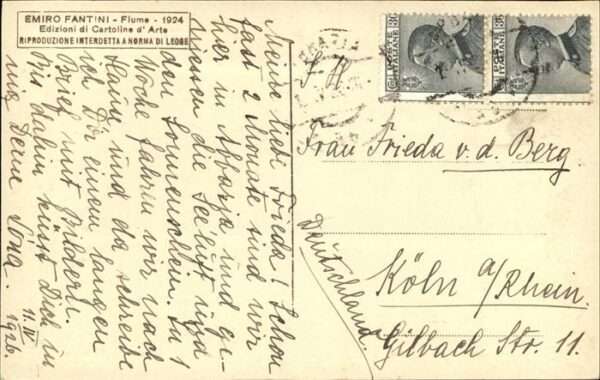 EMIRO FANTINI - Fiume - 1924
Edizioni di Cartoline d'Arte
RIPRODUZIONE INTERDETTA A NORMA DI LEGGE
Meine liebe Frieda! Schon
fast 2 Monate sind wir
hier in Abbazia und ge-
niessen die Seeluft und
den Sonnenschein. In 1
Woche fahren wir nach
Hause und da schreibe
ich Dir einen langen
Brief mit Bildern.
Bis dahin küsst Dich in-
nig Deine Lona.
11. IV
1926.
POSTE
ITALIANE
30
POSTE
ITALIANE
Frau Frieda v. d. Berg
Deutschland
Köln a/Rhein.
Gilbach Str. 11.